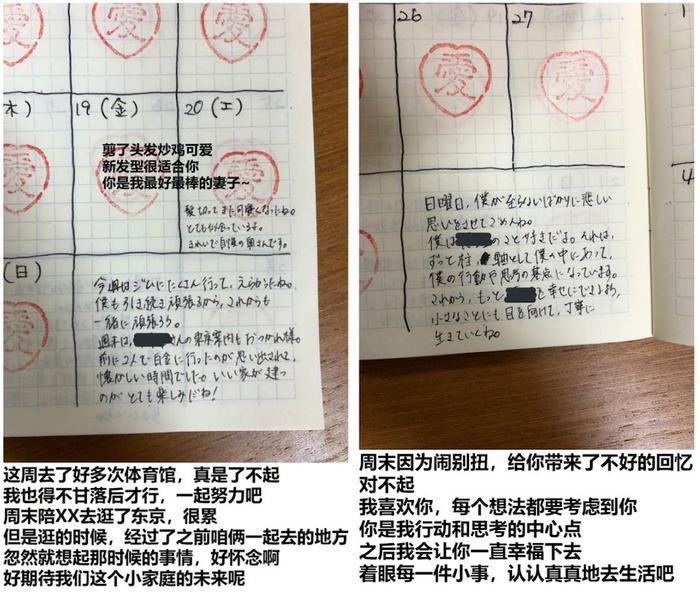 愛
愛
愛
木)
19(金)
20(土)
愛
愛
愛
剪了头发炒鸡可爱
新发型很适合你
你是我最好最棒的妻子~
髪切ってまた可愛くなったね。
とても似合っています。
きれいで自慢の奥さんです。
(日)
今週はジムにたくさん行って、えらかったね。
僕も引き続き頑張るから、これからも
一緒に頑張ろう。
週末は、さんの東京案内もおつかれ様。
前に2人で白金に行ったのが思い出されて、
懐かしい時間でした。いい家が建つ
のがとても楽しみだね!
这周去了好多次体育馆,真是了不起
我也得不甘落后才行,一起努力吧
周末陪XX去逛了东京,很累
但是逛的时候,经过了之前咱俩一起去的地方
忽然就想起那时候的事情,好怀念啊
好期待我们这个小家庭的未来呢
26
27
愛
愛
1
4
日曜日、僕が至らないばかりに悲しい
思いをさせてごめんね。
僕はのこと好きだよ。それは、
ずっと柱、軸として僕の中にあって、
僕の行動や思考の基点になっています。
これから、もっとを幸せにできるよう、
小さなことにも目を向けて、丁寧に
生きていくね。
周末因为闹别扭,给你带来了不好的回忆
对不起
我喜欢你,每个想法都要考虑到你
你是我行动和思考的中心点
之后我会让你一直幸福下去
着眼每一件小事,认认真真地去生活吧